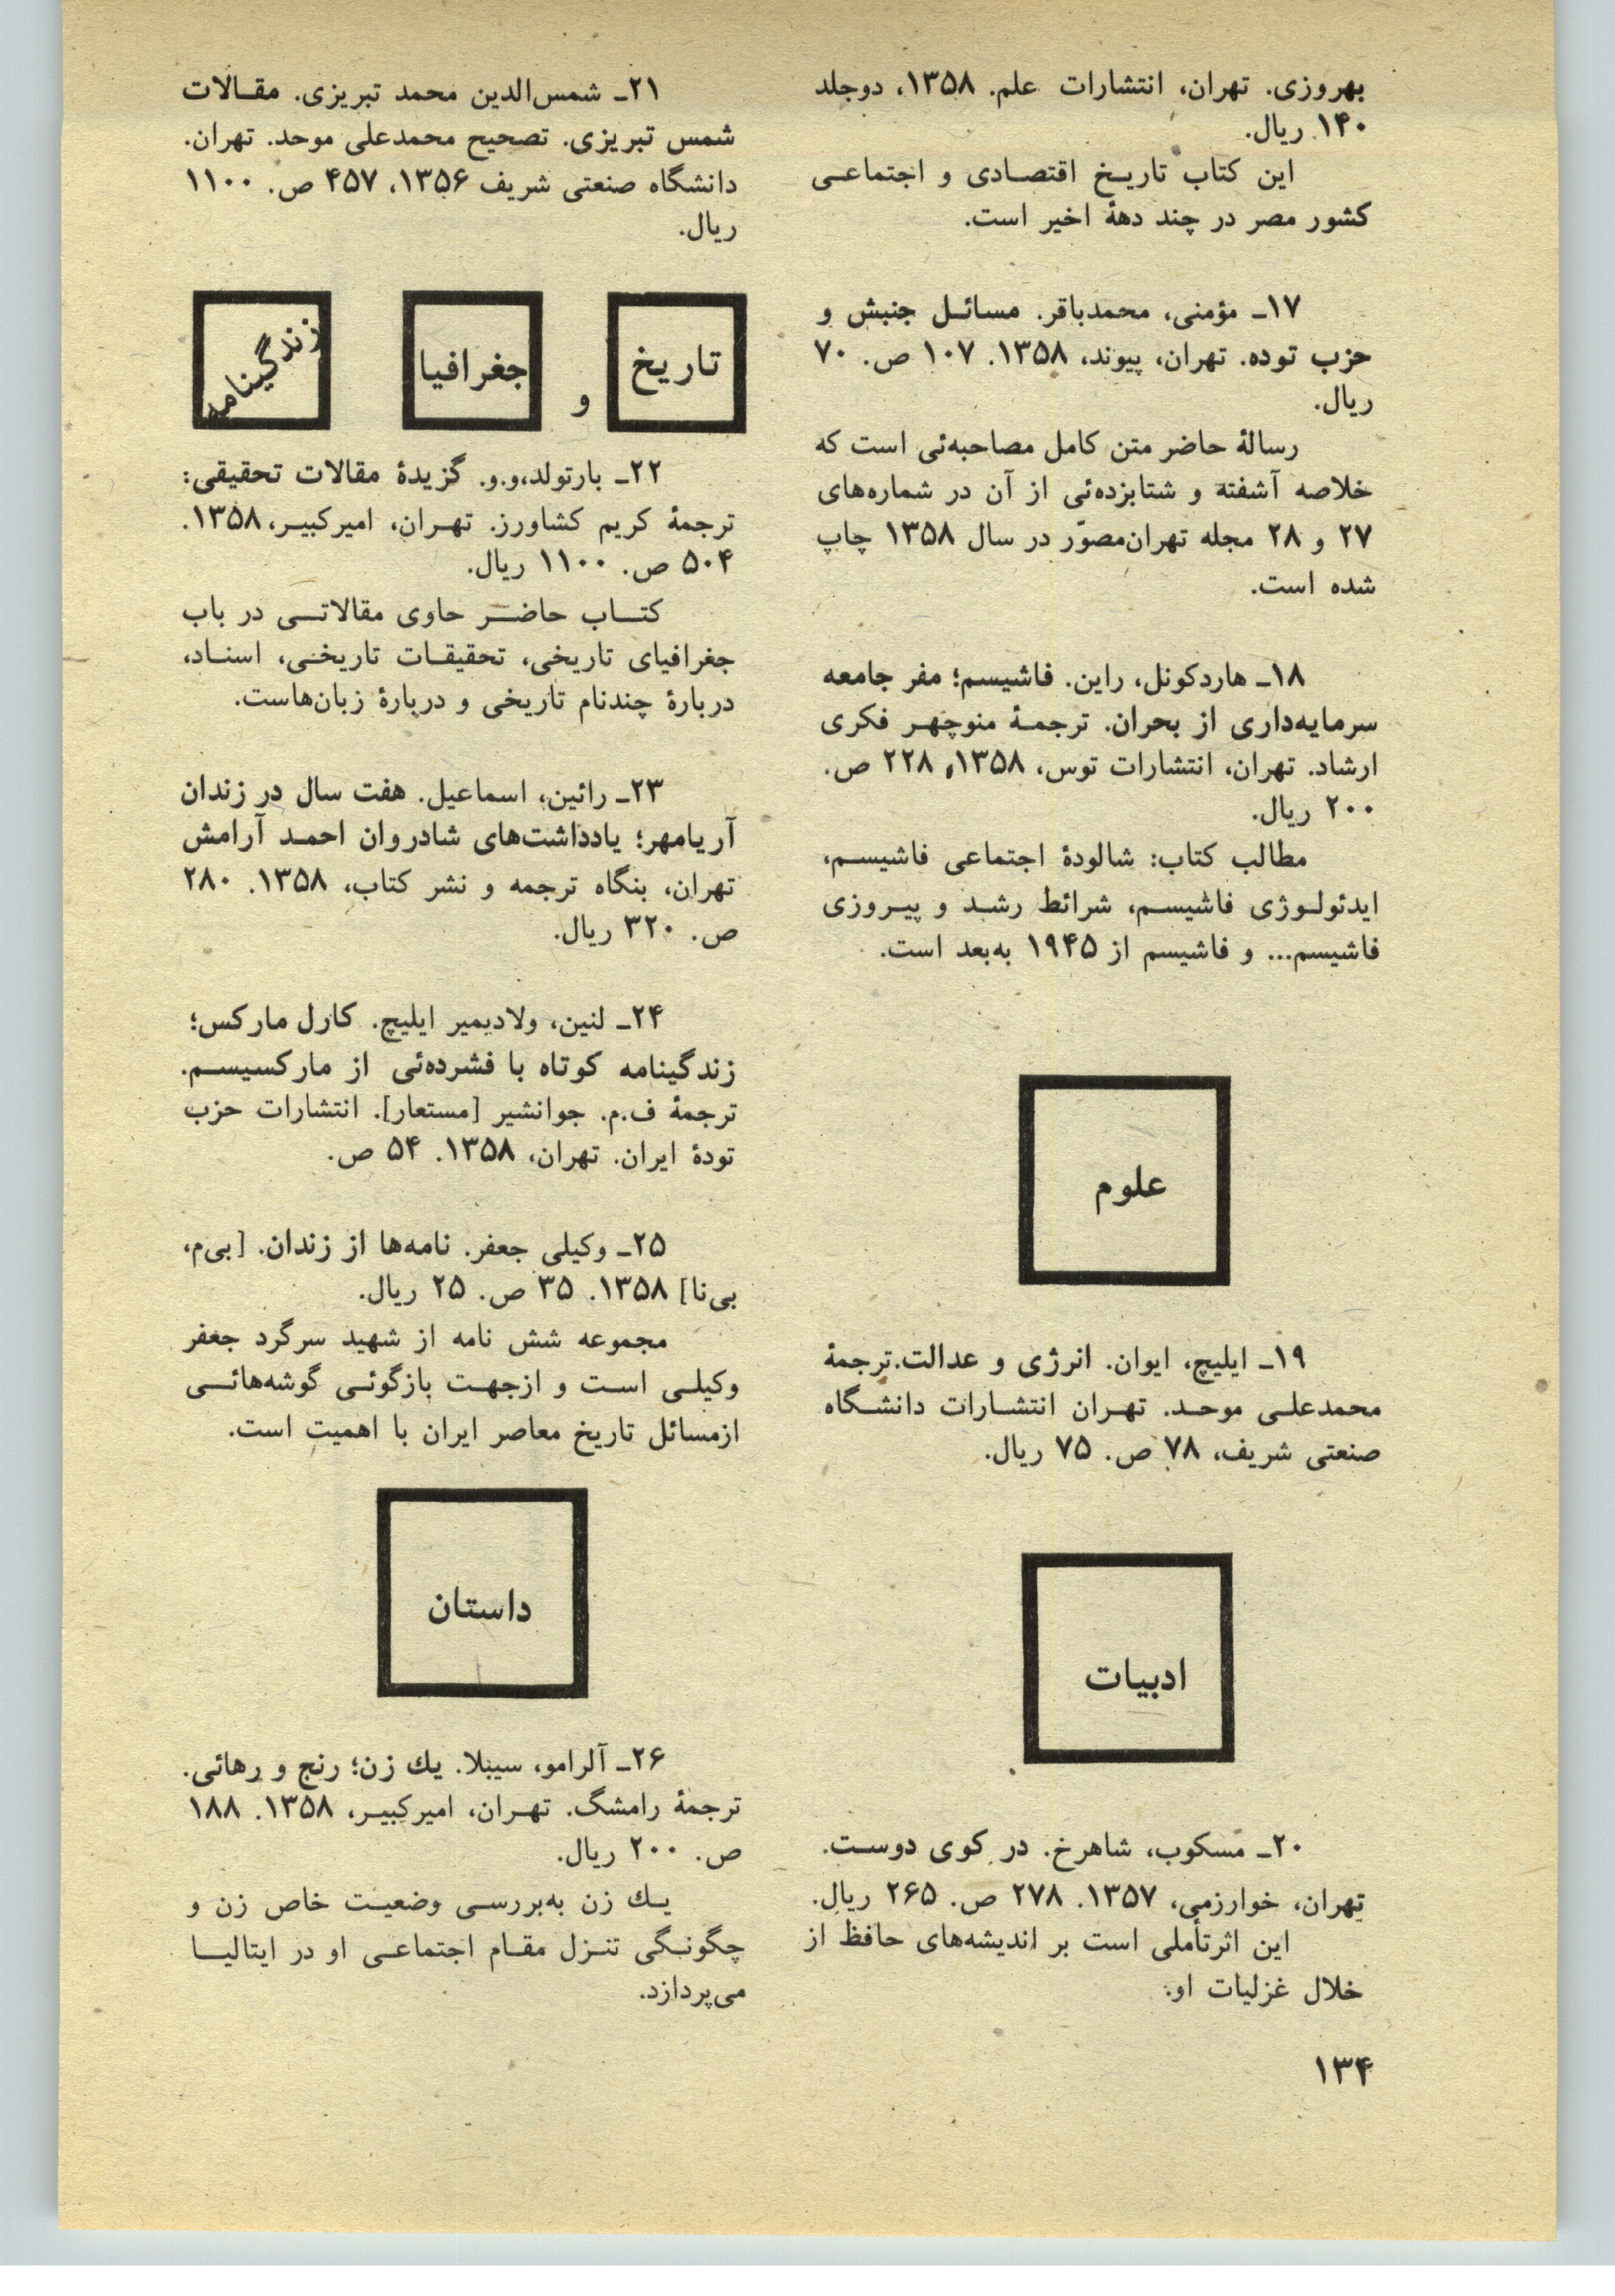 بهروزی. تهران، انتشارات علم. ۱۳۵۸، دوجلد
۱۴۰ ریال.
این کتاب تاریخ اقتصادی و اجتماعی
کشور مصر در چند دههٔ اخیر است.
۱۷ـ مؤمنی، محمدباقر. مسائل جنبش و
حزب توده. تهران، پیوند، ۱۳۵۸. ۱۰۷ ص. ۷۰
ریال.
رسالهٔ حاضر متن کامل مصاحبه‌ئی است که
خلاصه آشفته و شتابزده‌ئی از آن در شماره‌های
۲۷ و ۲۸ مجله تهران‌مصوّر در سال ۱۳۵۸ چاپ
شده است.
۱۸ـ هاردکونل، راین. فاشیسم؛ مفر جامعه
سرمایه‌داری از بحران. ترجمهٔ منوچهر فکری
ارشاد. تهران، انتشارات توس، ۱۳۵۸، ۲۲۸ ص.
۲۰۰ ریال.
مطالب کتاب: شالودهٔ اجتماعی فاشیسم،
ایدئولوژی فاشیسم، شرائط رشد و پیروزی
فاشیسم... و فاشیسم از ۱۹۴۵ به‌بعد است.
علوم
۱۹ـ ایلیچ، ایوان. انرژی و عدالت.ترجمهٔ
محمدعلی موحد. تهران انتشارات دانشگاه
صنعتی شریف، ۷۸ ص. ۷۵ ریال.
ادبیات
۲۰ـ مسکوب، شاهرخ. در کوی دوست.
تهران، خوارزمی، ۱۳۵۷. ۲۷۸ ص. ۲۶۵ ریال.
این اثرتأملی است بر اندیشه‌های حافظ از
خلال غزلیات او.
۱۳۴
۲۱ـ شمس‌الدین محمد تبریزی. مقالات
شمس تبریزی. تصحیح محمدعلی موحد. تهران.
دانشگاه صنعتی شریف ۱۳۵۶، ۴۵۷ ص. ۱۱۰۰
ریال.
تاریخ و جغرافیا زندگینامه
۲۲ـ بارتولد،و.و. گزیدهٔ مقالات تحقیقی:
ترجمهٔ کریم کشاورز. تهران، امیرکبیر،۱۳۵۸.
۵۰۴ ص. ۱۱۰۰ ریال.
کتاب حاضر حاوی مقالاتی در باب
جغرافیای تاریخی، تحقیقات تاریخی، اسناد،
دربارهٔ چندنام تاریخی و دربارهٔ زبان‌هاست.
۲۳ـ رائین، اسماعیل. هفت سال در زندان
آریامهر؛ یادداشت‌های شادروان احمد آرامش
تهران، بنگاه ترجمه و نشر کتاب، ۱۳۵۸. ۲۸۰
ص. ۳۲۰ ریال.
۲۴ـ لنین، ولادیمیر ایلیچ. کارل مارکس؛
زندگینامه کوتاه با فشرده‌ئی از مارکسیسم.
ترجمهٔ ف.م. جوانشیر [مستعار]. انتشارات حزب
تودهٔ ایران. تهران، ۱۳۵۸. ۵۴ ص.
۲۵ـ وکیلی جعفر. نامه‌ها از زندان. [بی‌م،
بی‌نا] ۱۳۵۸. ۳۵ ص. ۲۵ ریال.
مجموعه شش نامه از شهید سرگرد جعفر
وکیلی است و ازجهت بازگوئی گوشه‌هائی
ازمسائل تاریخ معاصر ایران با اهمیت است.
داستان
۲۶ـ آلرامو، سیبلا. یك زن؛ رنج و رهائی.
ترجمهٔ رامشگ. تهران، امیرکبیر، ۱۳۵۸. ۱۸۸
ص. ۲۰۰ ریال.
یك زن به‌بررسی وضعیت خاص زن و
چگونگی تنزل مقام اجتماعی او در ایتالیا
می‌پردازد.